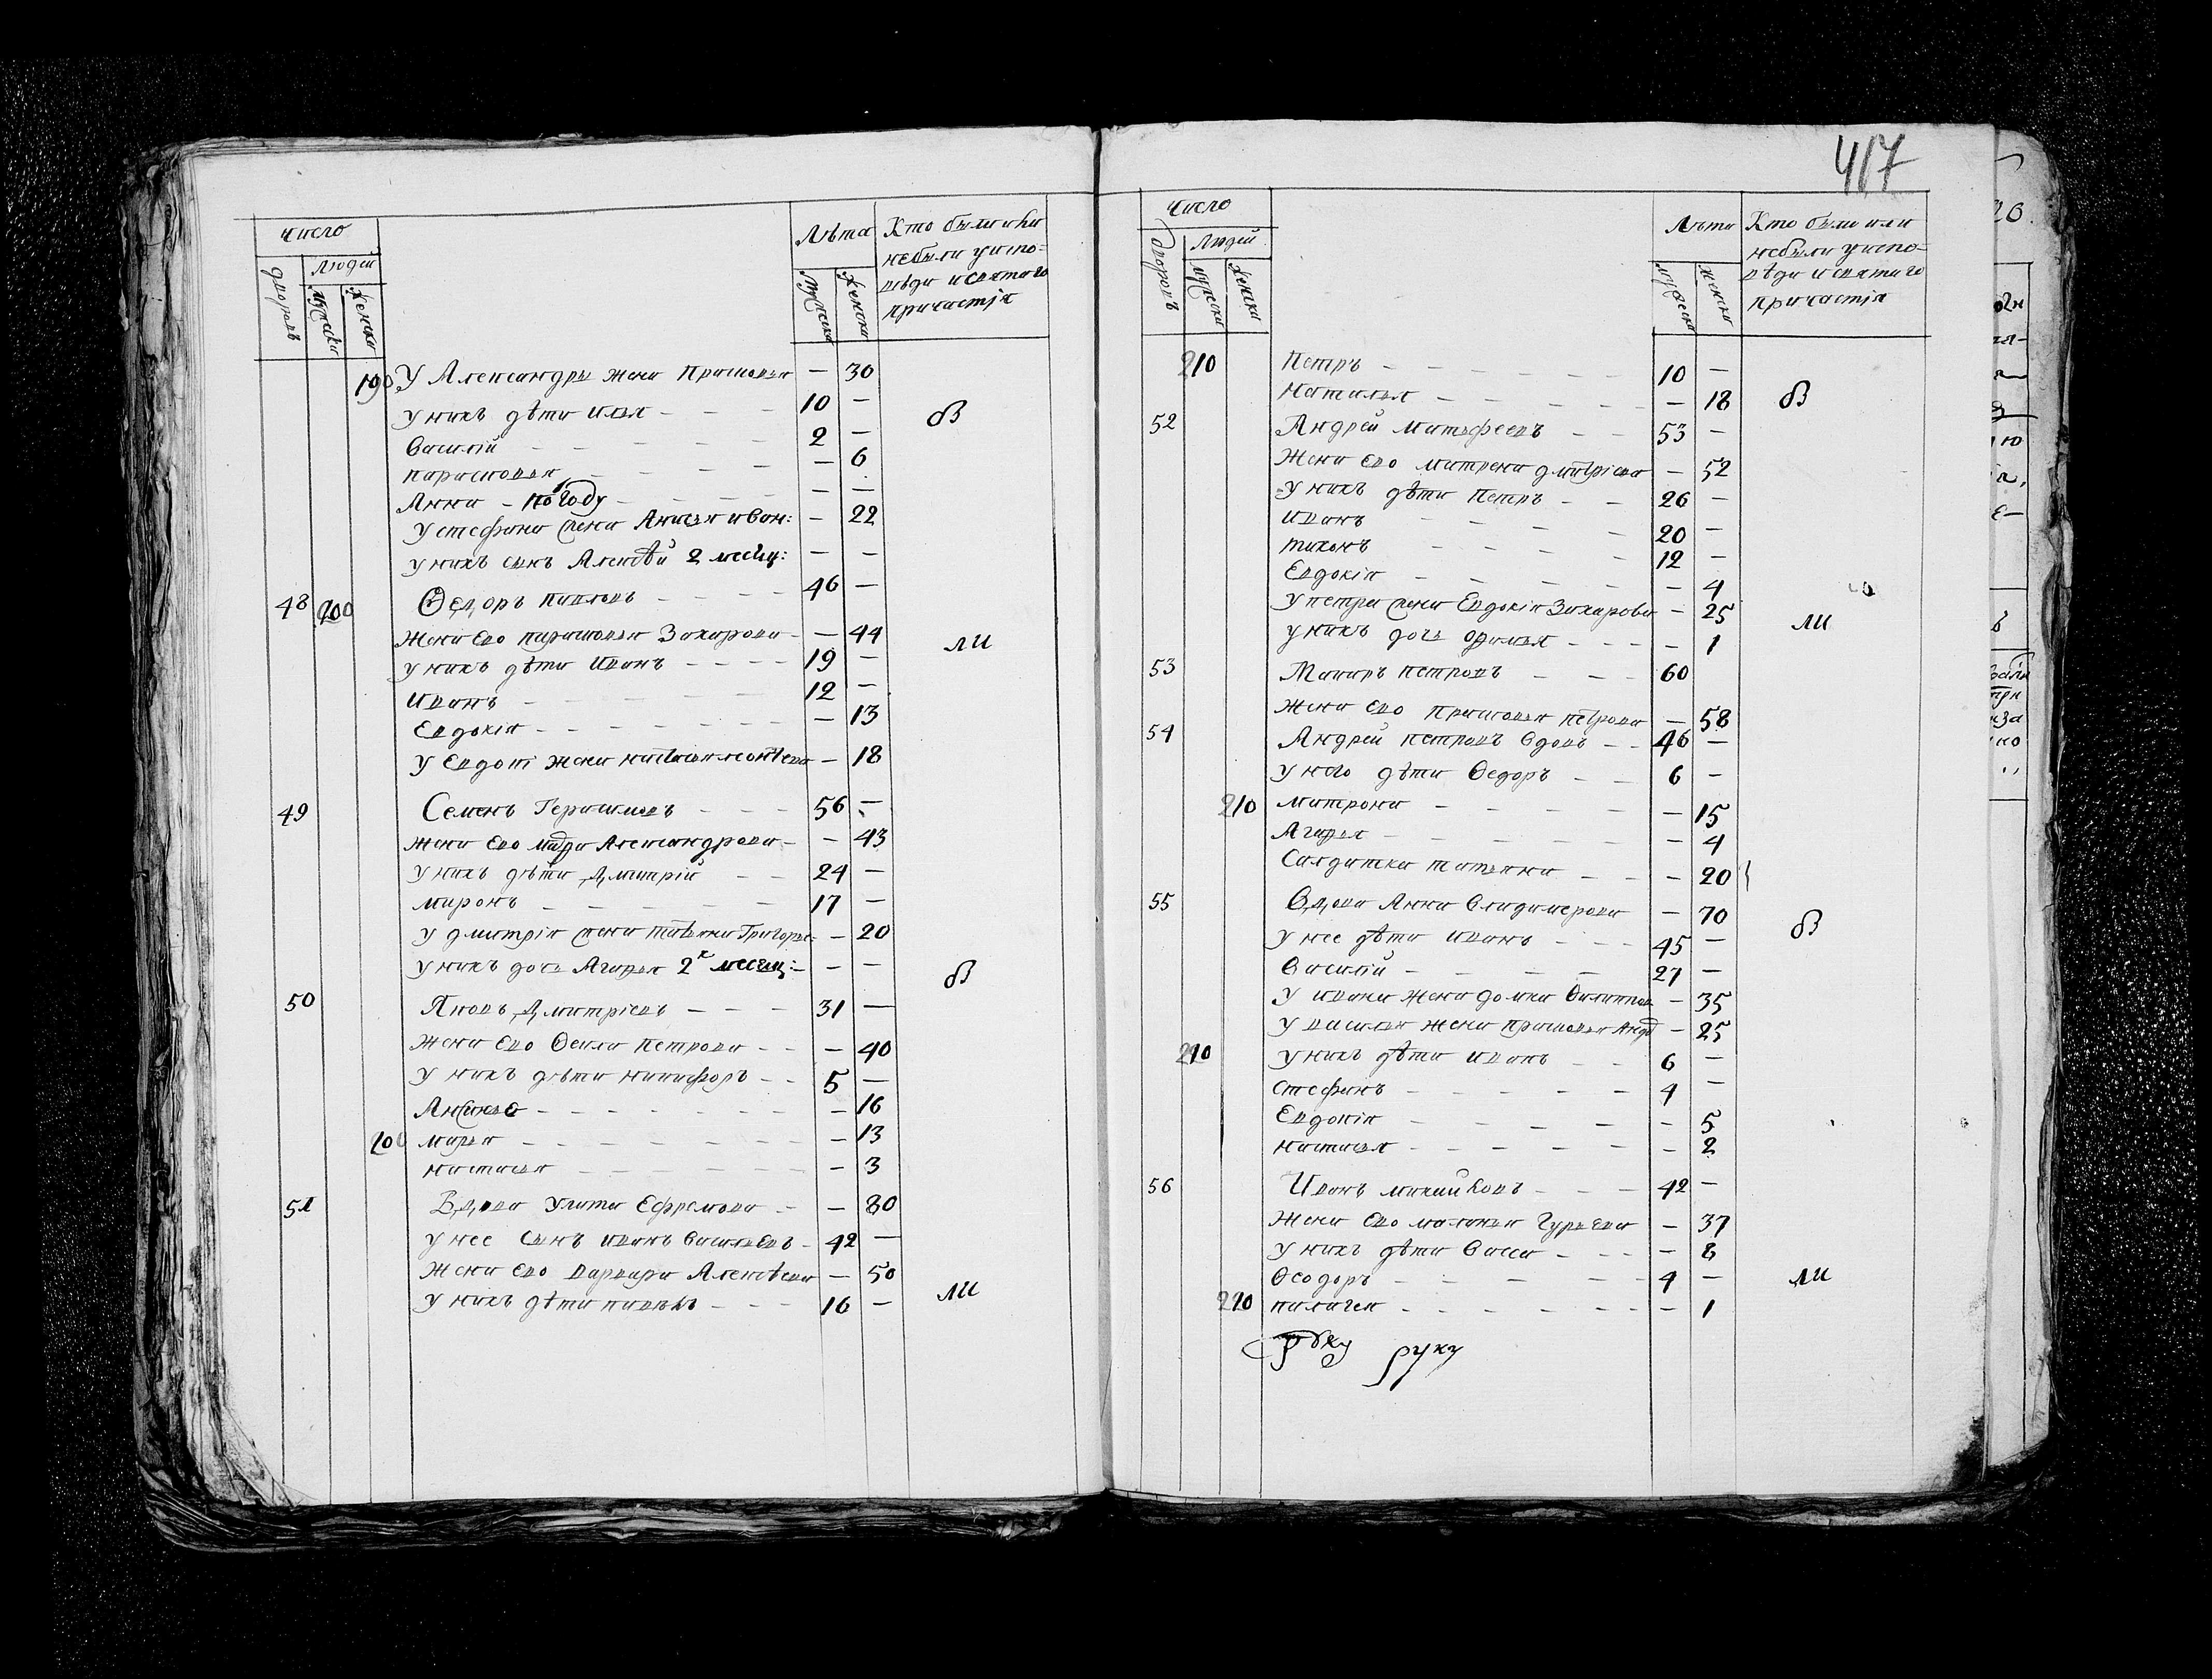 число
Людей
дворовъ
мужеска
женска
Лѣта
мужеска
женска
Кто были или
небыли уиспо-
вѣди исвятаго
причастія
190 У Александры жена Прасковья — 30
у нихъ дѣти Илья 10 —
Василій 2 —
парасковья — 6
Анна — по году — —
у стефана жена Анисья иван: — 22
у нихъ сынъ Алексѣй 2 месяц: — —
48 200 Ѳедоръ павловъ 46 —
жена ево парасковья Захарова — 44
у нихъ дѣти Иванъ 19 —
Иванъ 12 —
Евдокія — 13
— 18
49 Семенъ Герасимовъ 56 —
жена ево Александрова — 43
у нихъ дѣти Дмитрій 24 —
миронъ 17 —
у дмитрія жена татьяна Григорье — 20
у нихъ дочь Агафья 2х месяц: — —
50 Яковъ Дмитріевъ 31 —
жена ево Ѳекла петрова — 40
у нихъ дѣти никифоръ 5 —
— 16
200 марья — 13
настасья — 3
51 Вдова Улита Ефремова — 80
у нее сынъ иванъ Васильевъ 42 —
жена ево варвара Алексѣева — 50
у нихъ дѣти павелъ 16 —
В
ли
В
ли
417
число
Людей
дворовъ
мужески
женски
Лѣта
мужеска
женски
Кто были или
небыли уиспо-
вѣди исвятаго
причастія
210 Петръ 10 —
Наталья — 18
52 Андрей матвѣевъ 53 —
Жена ево матрена дмитріева — 52
у нихъ дѣти Петръ 26 —
Иванъ 20 —
тихонъ 12 —
Евдокія — 4
у петра жена Евдокія Захарова — 25
у нихъ дочь — 1
53 Макаръ петровъ 60
жена ево прасковья петрова — 58
54 Андрей петровъ вдовъ 46 —
у него дѣти Ѳедоръ 6 —
210 матрона — 15
Агафья — 4
Салдатка татьяна — 20
55 Вдова Анна Владимерова — 70
у нее дѣти иванъ 45 —
Василій 27 —
у ивана жена домна Филипова — 35
у василья жена прасковья Анд — 25
210 у нихъ дѣти иванъ 6 —
стефанъ 4 —
Евдокія — 5
настасья — 2
56 Иванъ 42 —
жена ево маланья Гурьева — 37
у нихъ дѣти Васса — 8
Ѳеодоръ 4 —
220 палагея — 1
В
ли
В
ли
руку